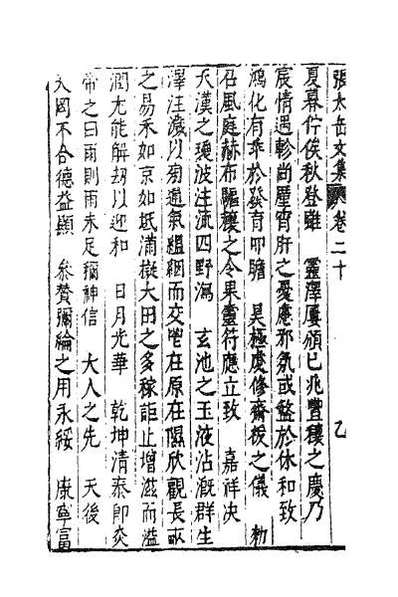 張太岳文集 卷二十 乙
夏暮佇俟秋登雖 靈澤屢頒已兆豐穰之慶乃
宸情遇軫尚厪宵旰之憂慮邪氛或盭於休和致
鴻化有乖於發育叩瞻 昊極虔修齋祓之儀 勅
召風庭赫布驅禳之令果靈符應立致 嘉祥決
天漢之 波注流四野瀉 玄池之玉液沾溉群生
澤汪濊以旁通氣絪縕而交鬯在原在隰欣觀長畝
之易禾如京如坻滿擬大田之多稼詎止增滋而溢
潤尤能解刼以迎和 日月光華 乾坤清泰即炎
帝之曰雨則雨未足彌神信 大人之先 天後
天罔不合德益顯 參贊彌綸之用永綏 康寧富